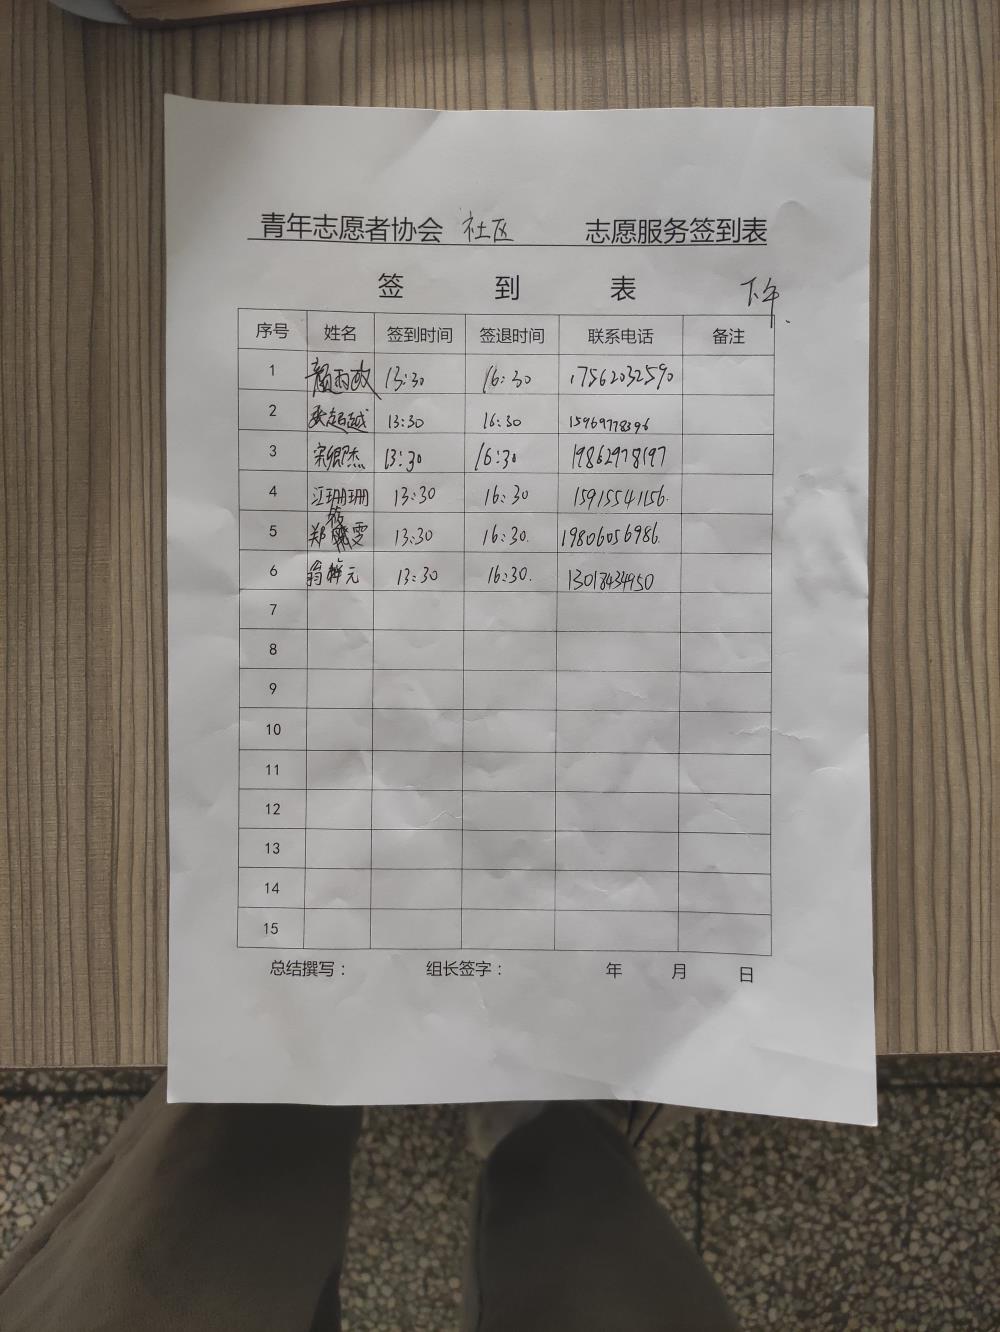 青年志愿者协会 社区 志愿服务签到表
签 到 表
下午
序号 姓名 签到时间 签退时间 联系电话 备注
1 颜雨政 13:30 16:30 17562032590
2 张超越 13:30 16:30 15969778396
3 宋卿杰 13:30 16:30 19862978197
4 江珊珊 13:30 16:30 15915541156
5 郑筱雯 13:30 16:30 19806056986
6 翁梓元 13:30 16:30 13018434950
7
8
9
10
11
12
13
14
15
总结撰写： 组长签字： 年 月 日